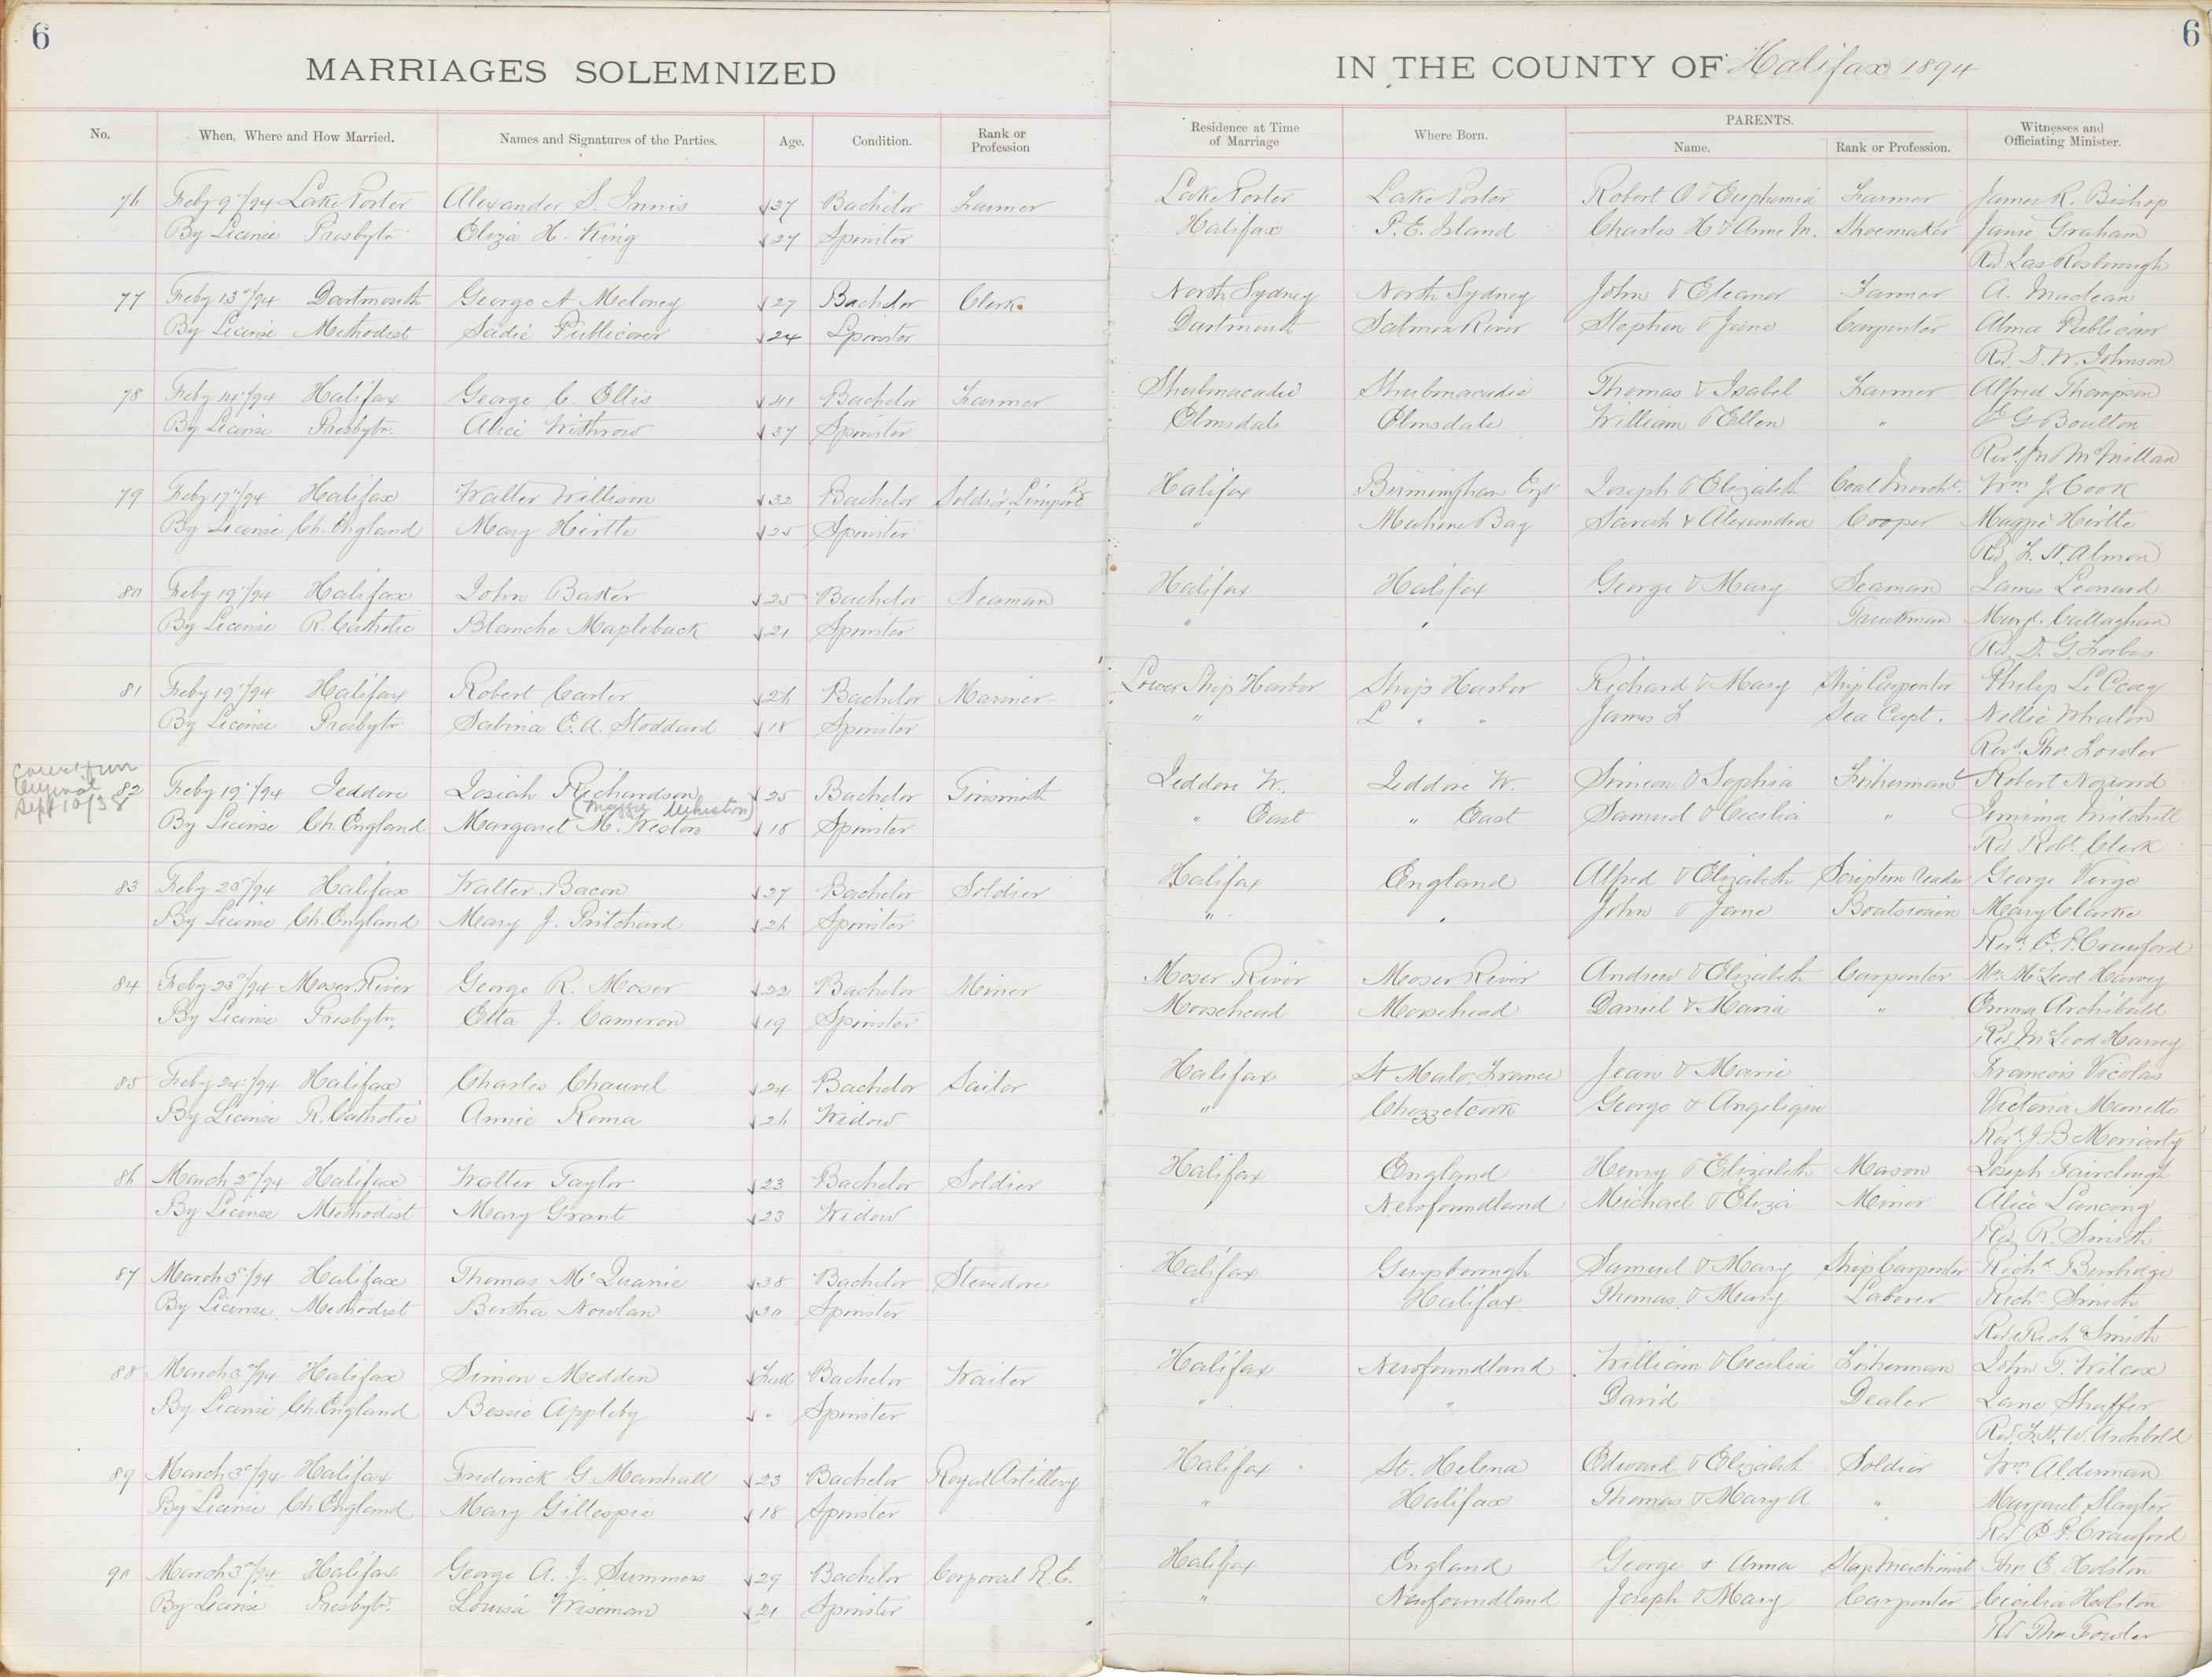 6
6
MARRIAGES SOLEMNIZED
IN THE COUNTY OF Halifax 1894
No. When, Where and How Married. Names and Signatures of the Parties. Age. Condition. Rank or Profession Residence at Time of Marriage Where Born. PARENTS. Name. Rank or Profession. Witnesses and Officiating Minister.
76 Feby 9"/94 Lake Porter Alexander S. Innis 37 Bachelor Farmer Lake Porter Lake Porter Robert O & Euphemia Farmer James R. Bishop
By License Presbytn Eliza H. King 27 Spinster Halifax P. E. Island Charles H & Anne M. Shoemaker Janie Graham
Rev Jas Rosborough
77 Feby 13"/94 Dartmouth George A Meloney 27 Bachelor Clerk North Sydney North Sydney John & Eleanor Farmer A. Maclean
By License Methodist Sadie Publicover 24 Spinster Dartmouth Salmon River Stephen & Jane Carpenter Alma Publicover
Rev. D. W. Johnson
78 Feby 14"/94 Halifax George C. Ellis 41 Bachelor Farmer Shubenacadie Shubenacadie Thomas & Isabel Farmer Alfred Thompson
By License Presbytn. Alice Withrow 37 Spinster Elmsdale Elmsdale William & Ellen " E G Boulton
Revd. Jn McMillan
79 Feby 17"/94 Halifax Walter Willison 32 Bachelor Soldier Halifax Birmingham Eng. Joseph & Elizabeth Coal Mercht. Wm J. Cook
By License Ch. England Mary Hirtle 25 Spinster " Mahone Bay Sarah & Alexandra Cooper Maggie Hirtle
Rev F. H. Almon
80 Feby 19"/94 Halifax John Baker 25 Bachelor Seaman Halifax Halifax George & Mary Seaman James Leonard
By License R. Catholic Blanche Mapleback 21 Spinster " " Truckman Margt. Callaghan
Rev. D. G. Forbes
81 Feby 19"/94 Halifax Robert Carter 26 Bachelor Mariner Lower Ship Harbor Ship Harbor Richard & Mary Ship Carpenter Philip
By License Presbytn Sabina E. A. Stoddard 18 Spinster " L " " James L Sea Capt. Nellie
Revd. Thos. Fowler
Correct from Original Sept 10/38
82 Feby 19"/94 Jeddore Josiah Richardson 25 Bachelor Tinsmith Jeddore W. Jeddore W. Simeon & Sophia Fisherman Robert
(Maggie Whiston)
By License Ch. England Margaret M. Weston 18 Spinster " East " East Samuel & Cecilia " Jemima Mitchell
Rev Robt. Clerk
83 Feby 20"/94 Halifax Walter Bacon 27 Bachelor Soldier Halifax England Alfred & Elizabeth Scripture Reader George Virgo
By License Ch. England Mary J. Pritchard 26 Spinster " " John & Jane Boatswain Mary Clarke
Revd. E. P. Crawford
84 Feby 23"/94 Moser River George R. Moser 22 Bachelor Miner Moser River Moser River Andrew & Elizabeth Carpenter Mrs McLeod Harvey
By License Presbytn. Etta J. Cameron 19 Spinster Moosehead Moosehead Daniel & Maria " Emma Archibald
Rev McLeod Harvey
85 Feby 24"/94 Halifax Charles Chauvel 24 Bachelor Sailor Halifax St Malo, France Jean & Marie Francois Nicolas
By License R. Catholic Annie Roma 26 Widow " Chezzetcook George & Angelique Victoria Manette
Revd. J. B Moriarty
86 March 2"/94 Halifax Walter Taylor 23 Bachelor Soldier Halifax England Henry & Elizabeth Mason Joseph Fairclough
By License Methodist Mary Grant 23 Widow " Newfoundland Michael & Eliza Miner Alice
Rev. R. Smith
87 March 3"/94 Halifax Thomas McQuarrie 38 Bachelor Stevedore Halifax Guysborough Samuel & Mary Ship Carpenter Richd
By License Methodist Bertha Nowlan 30 Spinster " Halifax Thomas & Mary Laborer Richd Smith
Rev Rich Smith
88 March 3"/94 Halifax Simon Medden Full Bachelor Waiter Halifax Newfoundland William & Cecilia Fisherman John T. Wilcox
By License Ch. England Bessie Appleby " Spinster " " David Dealer Jane Shaffer
Rev. F. H. W. Archbold
89 March 3"/94 Halifax Frederick G. Marshall 23 Bachelor Royal Artillery Halifax St. Helena Edward & Elizabeth Soldier Wm Alderman
By License Ch England Mary Gillespie 18 Spinster " Halifax Thomas & Mary A " Margaret Slayter
Rev E P. Crawford
90 March 3"/94 Halifax George A. J. Summers 29 Bachelor Corporal R. E. Halifax England George & Anna Machinist Thos E. Holston
By License Presbytn. Louisa Wiseman 21 Spinster " Newfoundland Joseph & Mary Carpenter Cicilia Holston
Rev Thos. Fowler